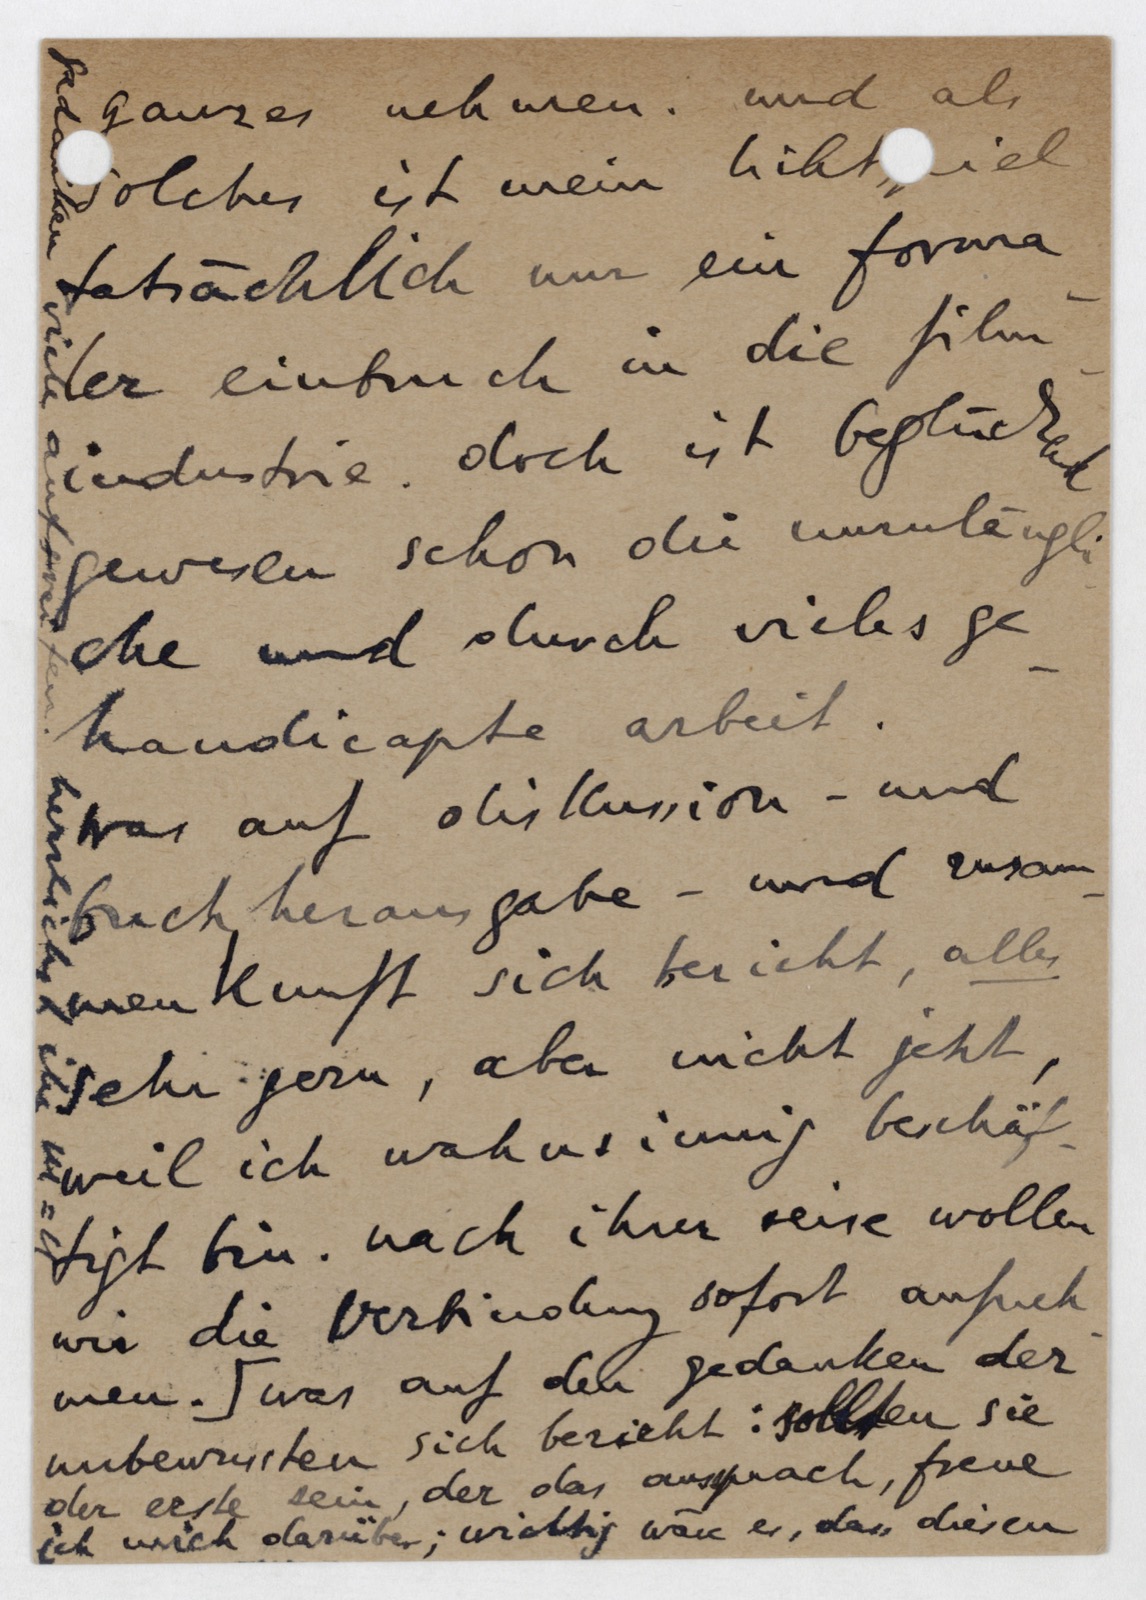 ganzes nehmen. und als
solches ist mein lichtspiel
tatsächlich nur ein forma-
ler einbruch in die film-
industrie. doch ist beglückend
gewesen schon die unzulängli-
che und durch vieles ge-
handicapte arbeit.
was auf diskussion - und
buchherausgabe - und zusam-
menkunft sich bezieht, alles
sehr gern, aber nicht jetzt,
weil ich wahnsinnig beschäf-
tigt bin. nach ihrer reise wollen
wir die verbindung sofort aufneh-
men.] was auf den gedanken der
unbewussten sich bezieht: sollten sie
der erste sein, der das aussprach, freue
ich mich darüber; wichtig wäre es, dass diesen
gedanken viele aufgreifen. herzlichst ihr